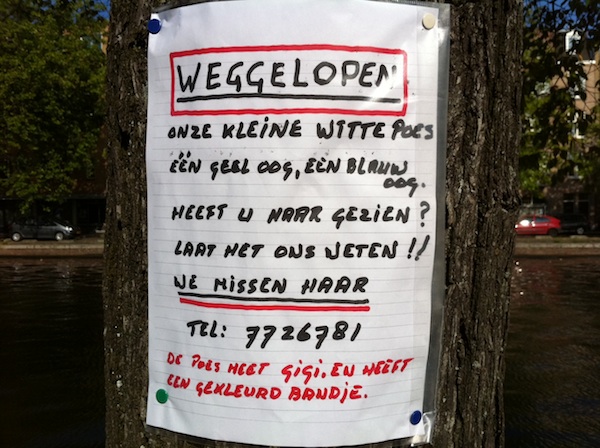 WEGGELOPEN
ONZE KLEINE WITTE POES
ÉÉN GEEL OOG, EEN BLAUW
OOG.
HEEFT U HAAR GEZIEN?
LAAT HET ONS WETEN!!
WE MISSEN HAAR
TEL: 7726781
DE POES HEET GIGI. EN HEEFT
EEN GEKLEURD BANDJE.